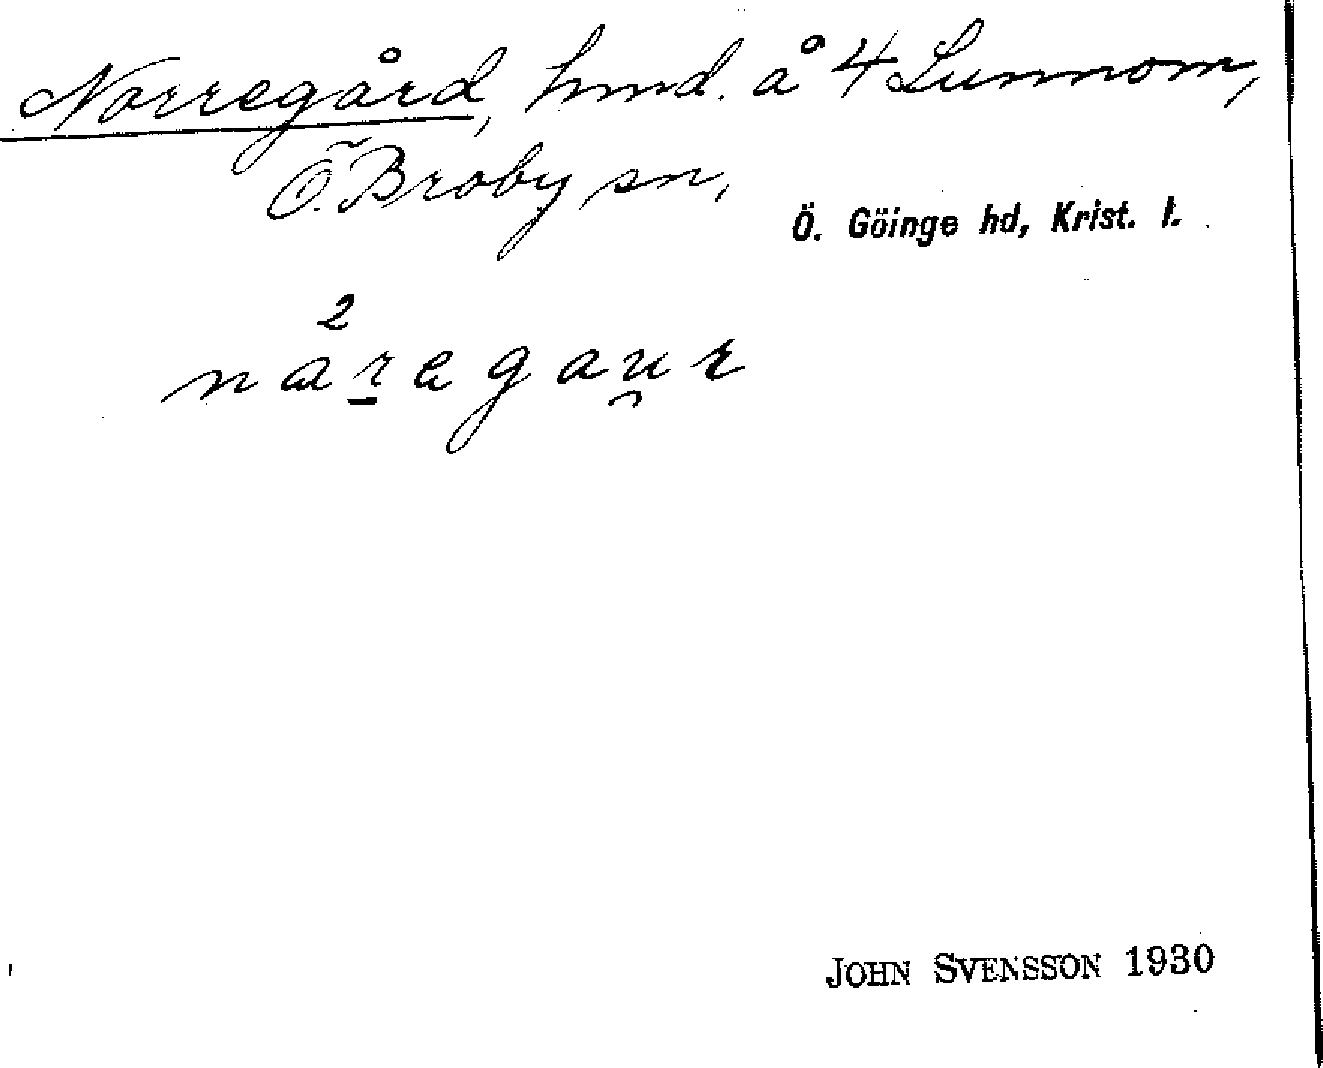 Norregård, hmd. å 4 Lunnom,
Ö. Broby sn,
Ö. Göinge hd, Krist. l.
2
nåregau̯r
JOHN SVENSSON 1930